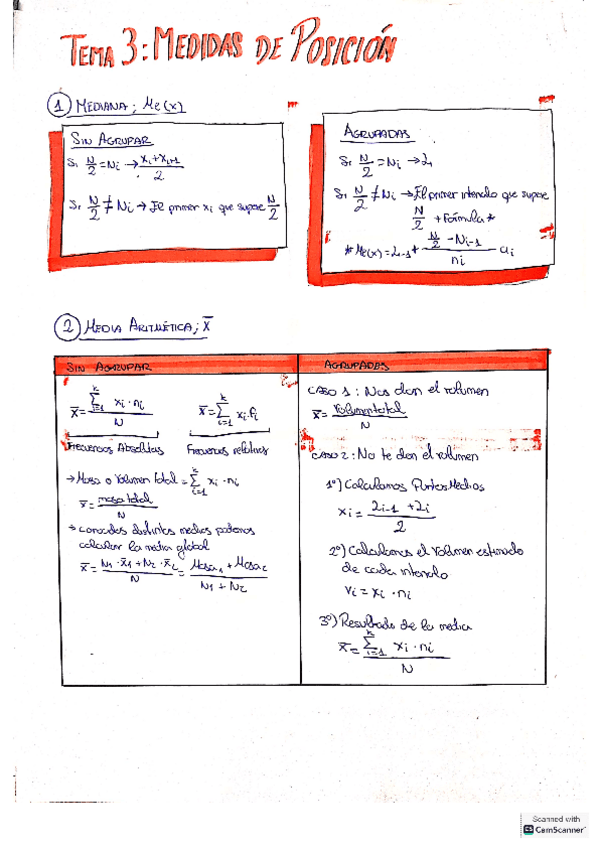 TEMA 3: MEDIDAS DE POSICIÓN
① MEDIANA; Me(x)
SIN AGRUPAR
Si N/2 = Ni → xi + xi+1 / 2
Si N/2 ≠ Ni → El primer xi que supere N/2
AGRUPADAS
Si N/2 = Ni → Li
Si N/2 ≠ Ni → El primer intervalo que supere
N/2 + Fórmula *
* Me(x) = Li-1 + N/2 - Ni-1 / ni ai
② MEDIA ARITMÉTICA; x̄
SIN AGRUPAR
x̄ = Σ(i=1, k) xi · ni / N
x̄ = Σ(i=1, k) xi · fi
Frecuencias Absolutas
Frecuencias relativas
→ Masa o Volumen total = Σ(i=1, k) xi · ni
x̄ = masa total / N
→ conocidas distintas medias podemos
calcular la media global
x̄ = N1 · x̄1 + N2 · x̄2 / N = Masa1 + Masa2 / N1 + N2
AGRUPADOS
CASO 1: Nos dan el volumen
x̄ = Volumen total / N
CASO 2: No te dan el volumen
1º) Calculamos Puntos Medios
xi = Li-1 + Li / 2
2º) Calculamos el Volumen estimado
de cada intervalo
Vi = xi · ni
3º) Resultado de la media
x̄ = Σ(i=1, k) xi · ni / N
Scanned with
CS CamScanner